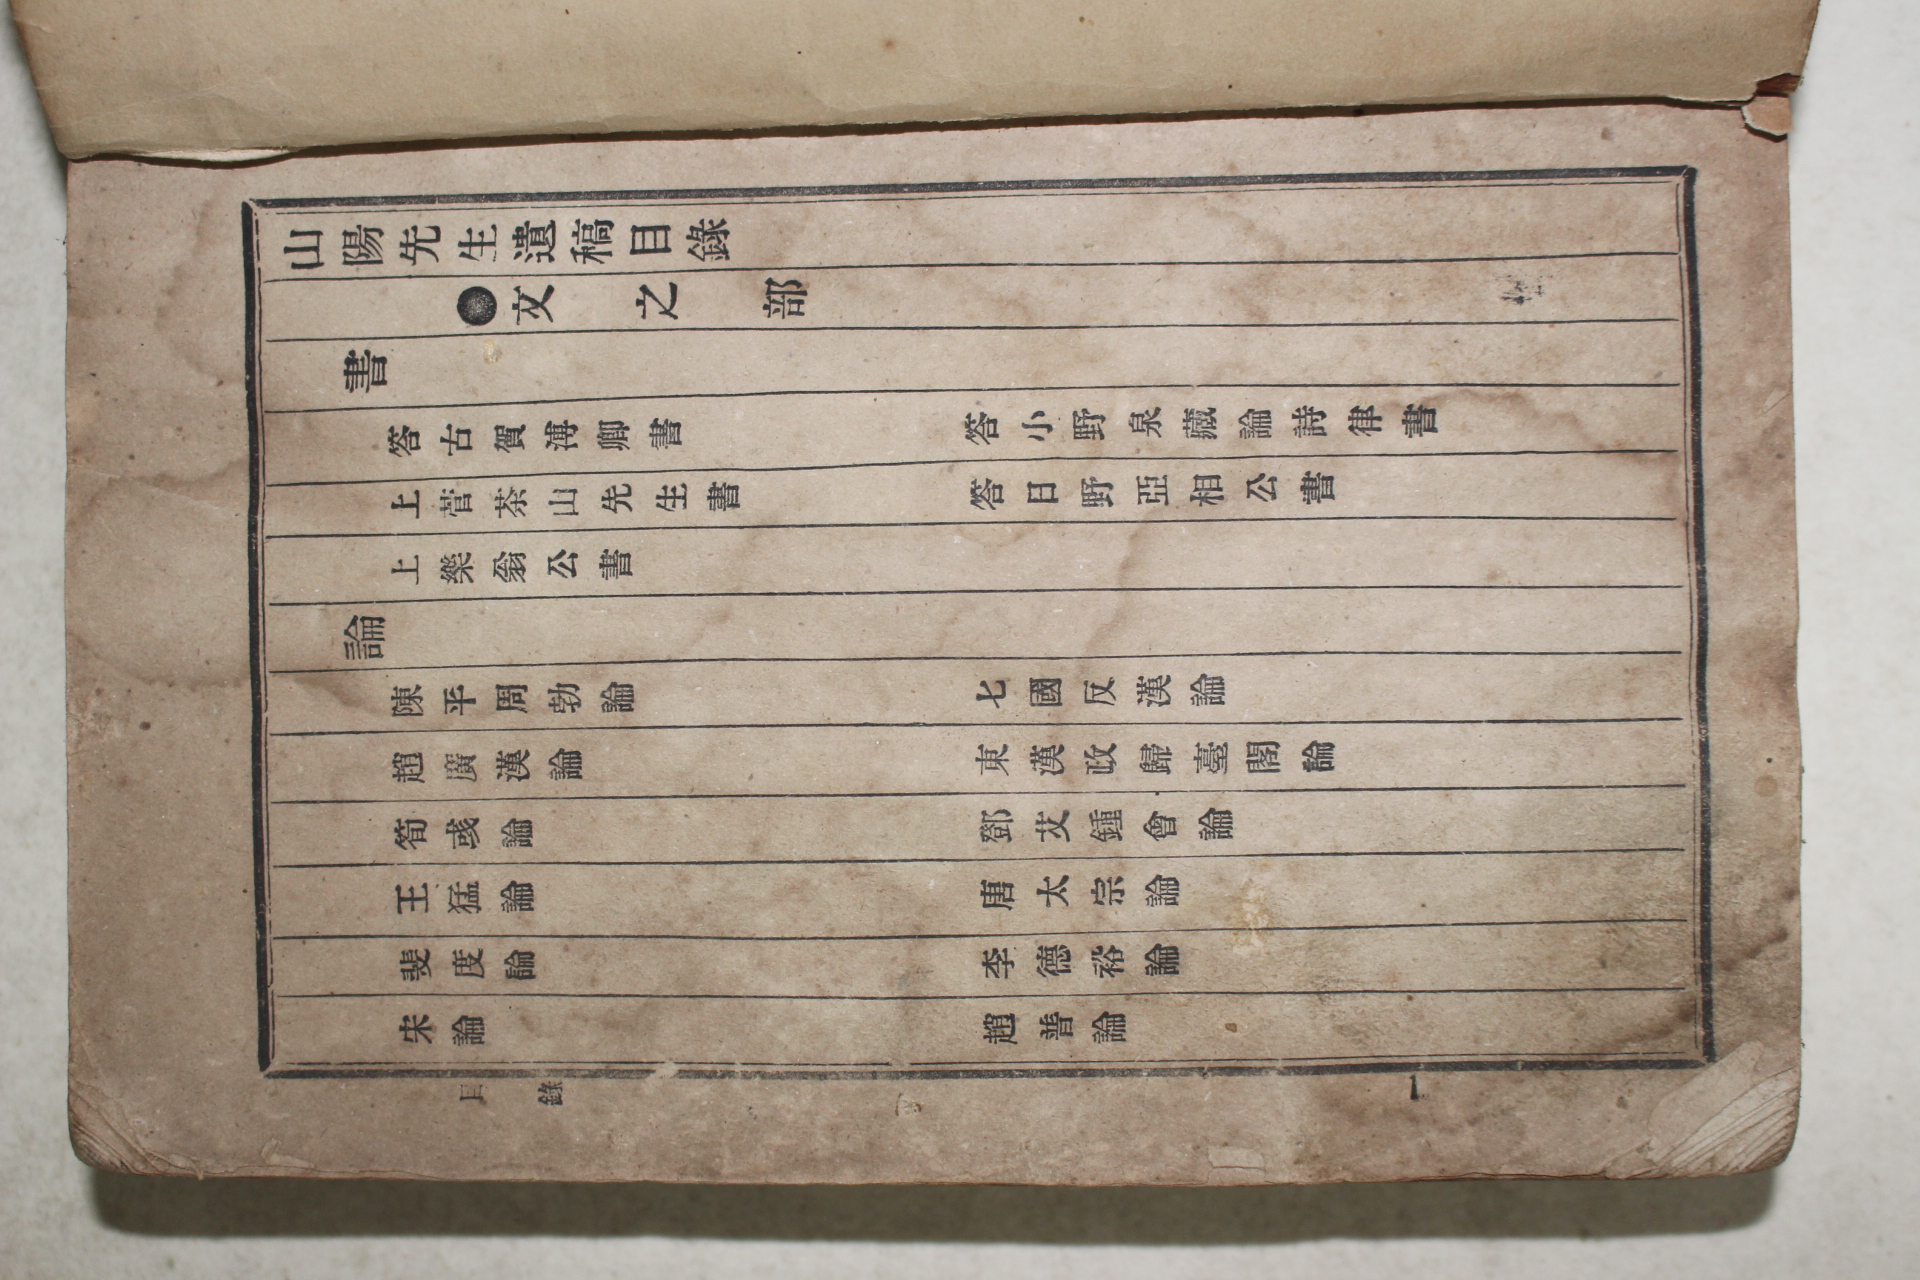 山陽先生遺稿目錄
●文之部
書
答古賀溥卿書 答小野泉藏論詩律書
上菅茶山先生書 答日野亞相公書
上樂翁公書
論
陳平周勃論 七國反漢論
趙廣漢論 東漢政歸臺閣論
荀彧論 鄧艾鍾會論
王猛論 唐太宗論
裴度論 李德裕論
宋論 趙普論
目錄 一